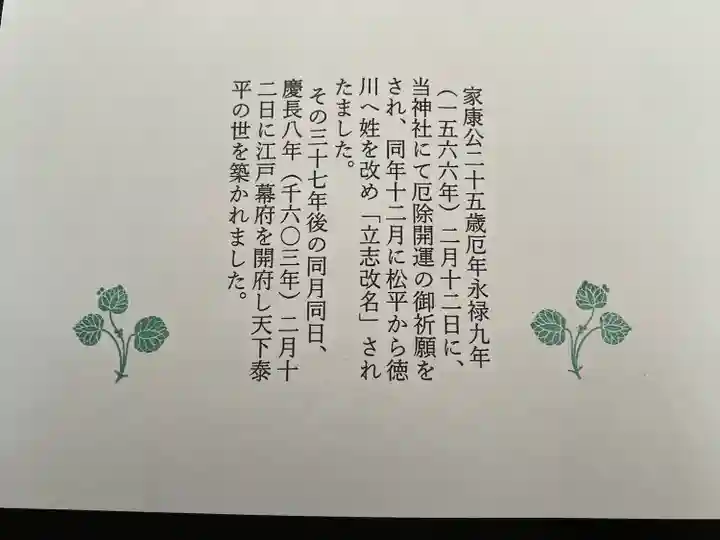 家康公二十五歳厄年永禄九年
(一五六六年)二月十二日に、
当神社にて厄除開運の御祈願を
され、同年十二月に松平から徳
川へ姓を改め「立志改名」され
たました。
その三十七年後の同月同日、
慶長八年(千六〇三年)二月十
二日に江戸幕府を開府し天下泰
平の世を築かれました。